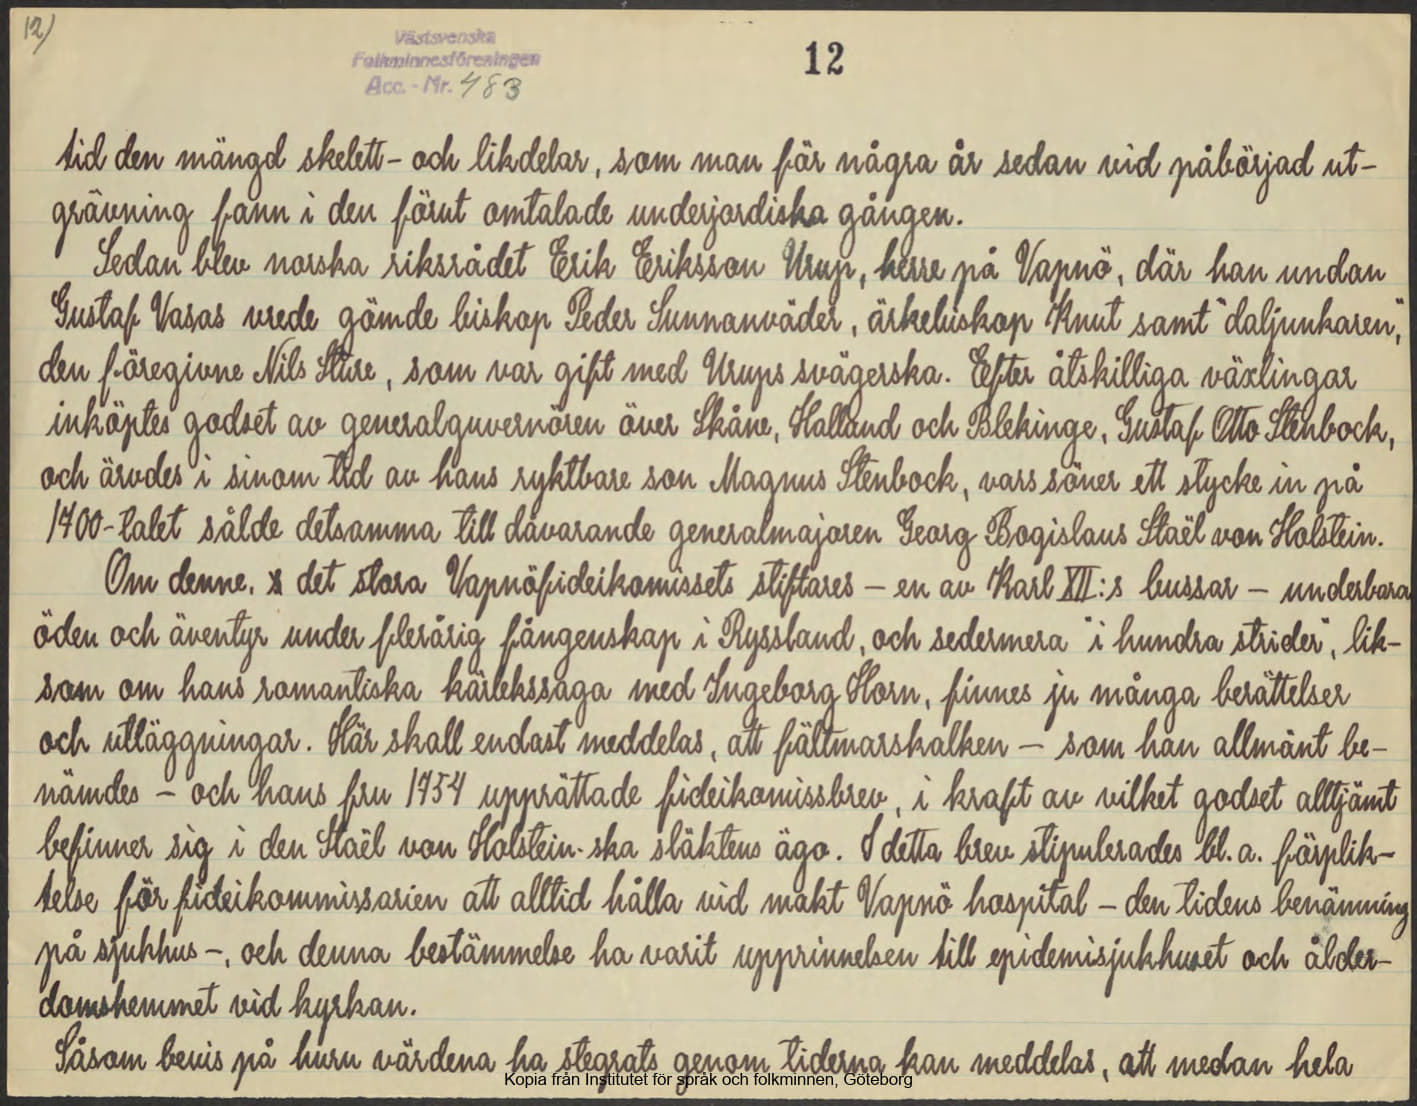 12)
Västsvenska
Folkminnesföreningen
Acc.-Nr. 483
12
tid den mängd skelett- och likdelar, som man för några år sedan vid påbörjad ut-
grävning fann i den förut omtalade underjordiska gången.
Sedan blev norska riksrådet Erik Eriksson Urup, herre på Vapnö, där han undan
Gustaf Vasas vrede gömde biskop Peder Sunnanväder, ärkebiskop Knut samt "daljunkaren",
den föregivne Nils Sture, som var gift med Urups svägerska. Efter åtskilliga växlingar
inköptes godset av generalguvernören över Skåne, Halland och Blekinge, Gustaf Otto Stenbock,
och ärvdes i sinom tid av hans ryktbare son Magnus Stenbock, vars söner ett stycke in på
1700-talet sålde detsamma till dåvarande generalmajoren Georg Bogislaus Staël von Holstein.
Om denne, det stora Vapnöfideikomissets stiftares – en av Karl XII:s bussar – underbara
öden och äventyr under flerårig fångenskap i Ryssland, och sedermera "i hundra strider", lik-
som om hans romantiska kärlekssaga med Ingeborg Horn, finnes ju många berättelser
och utläggningar. Här skall endast meddelas, att fältmarskalken – som han allmänt be-
nämdes – och hans fru 1754 upprättade fideikomissbrev, i kraft av vilket godset alltjämt
befinner sig i den Staël von Holstein-ska släktens ägo. I detta brev stipulerades bl.a. förplik-
telse för fideikommissarien att alltid hålla vid makt Vapnö hospital – den tidens benämning
på sjukhus –, och denna bestämmelse ha varit upprinnelsen till epidemisjukhuset och ålder-
domshemmet vid kyrkan.
Såsom bevis på huru värdena ha stegrats genom tiderna kan meddelas, att medan hela
Kopia från Institutet för språk och folkminnen, Göteborg